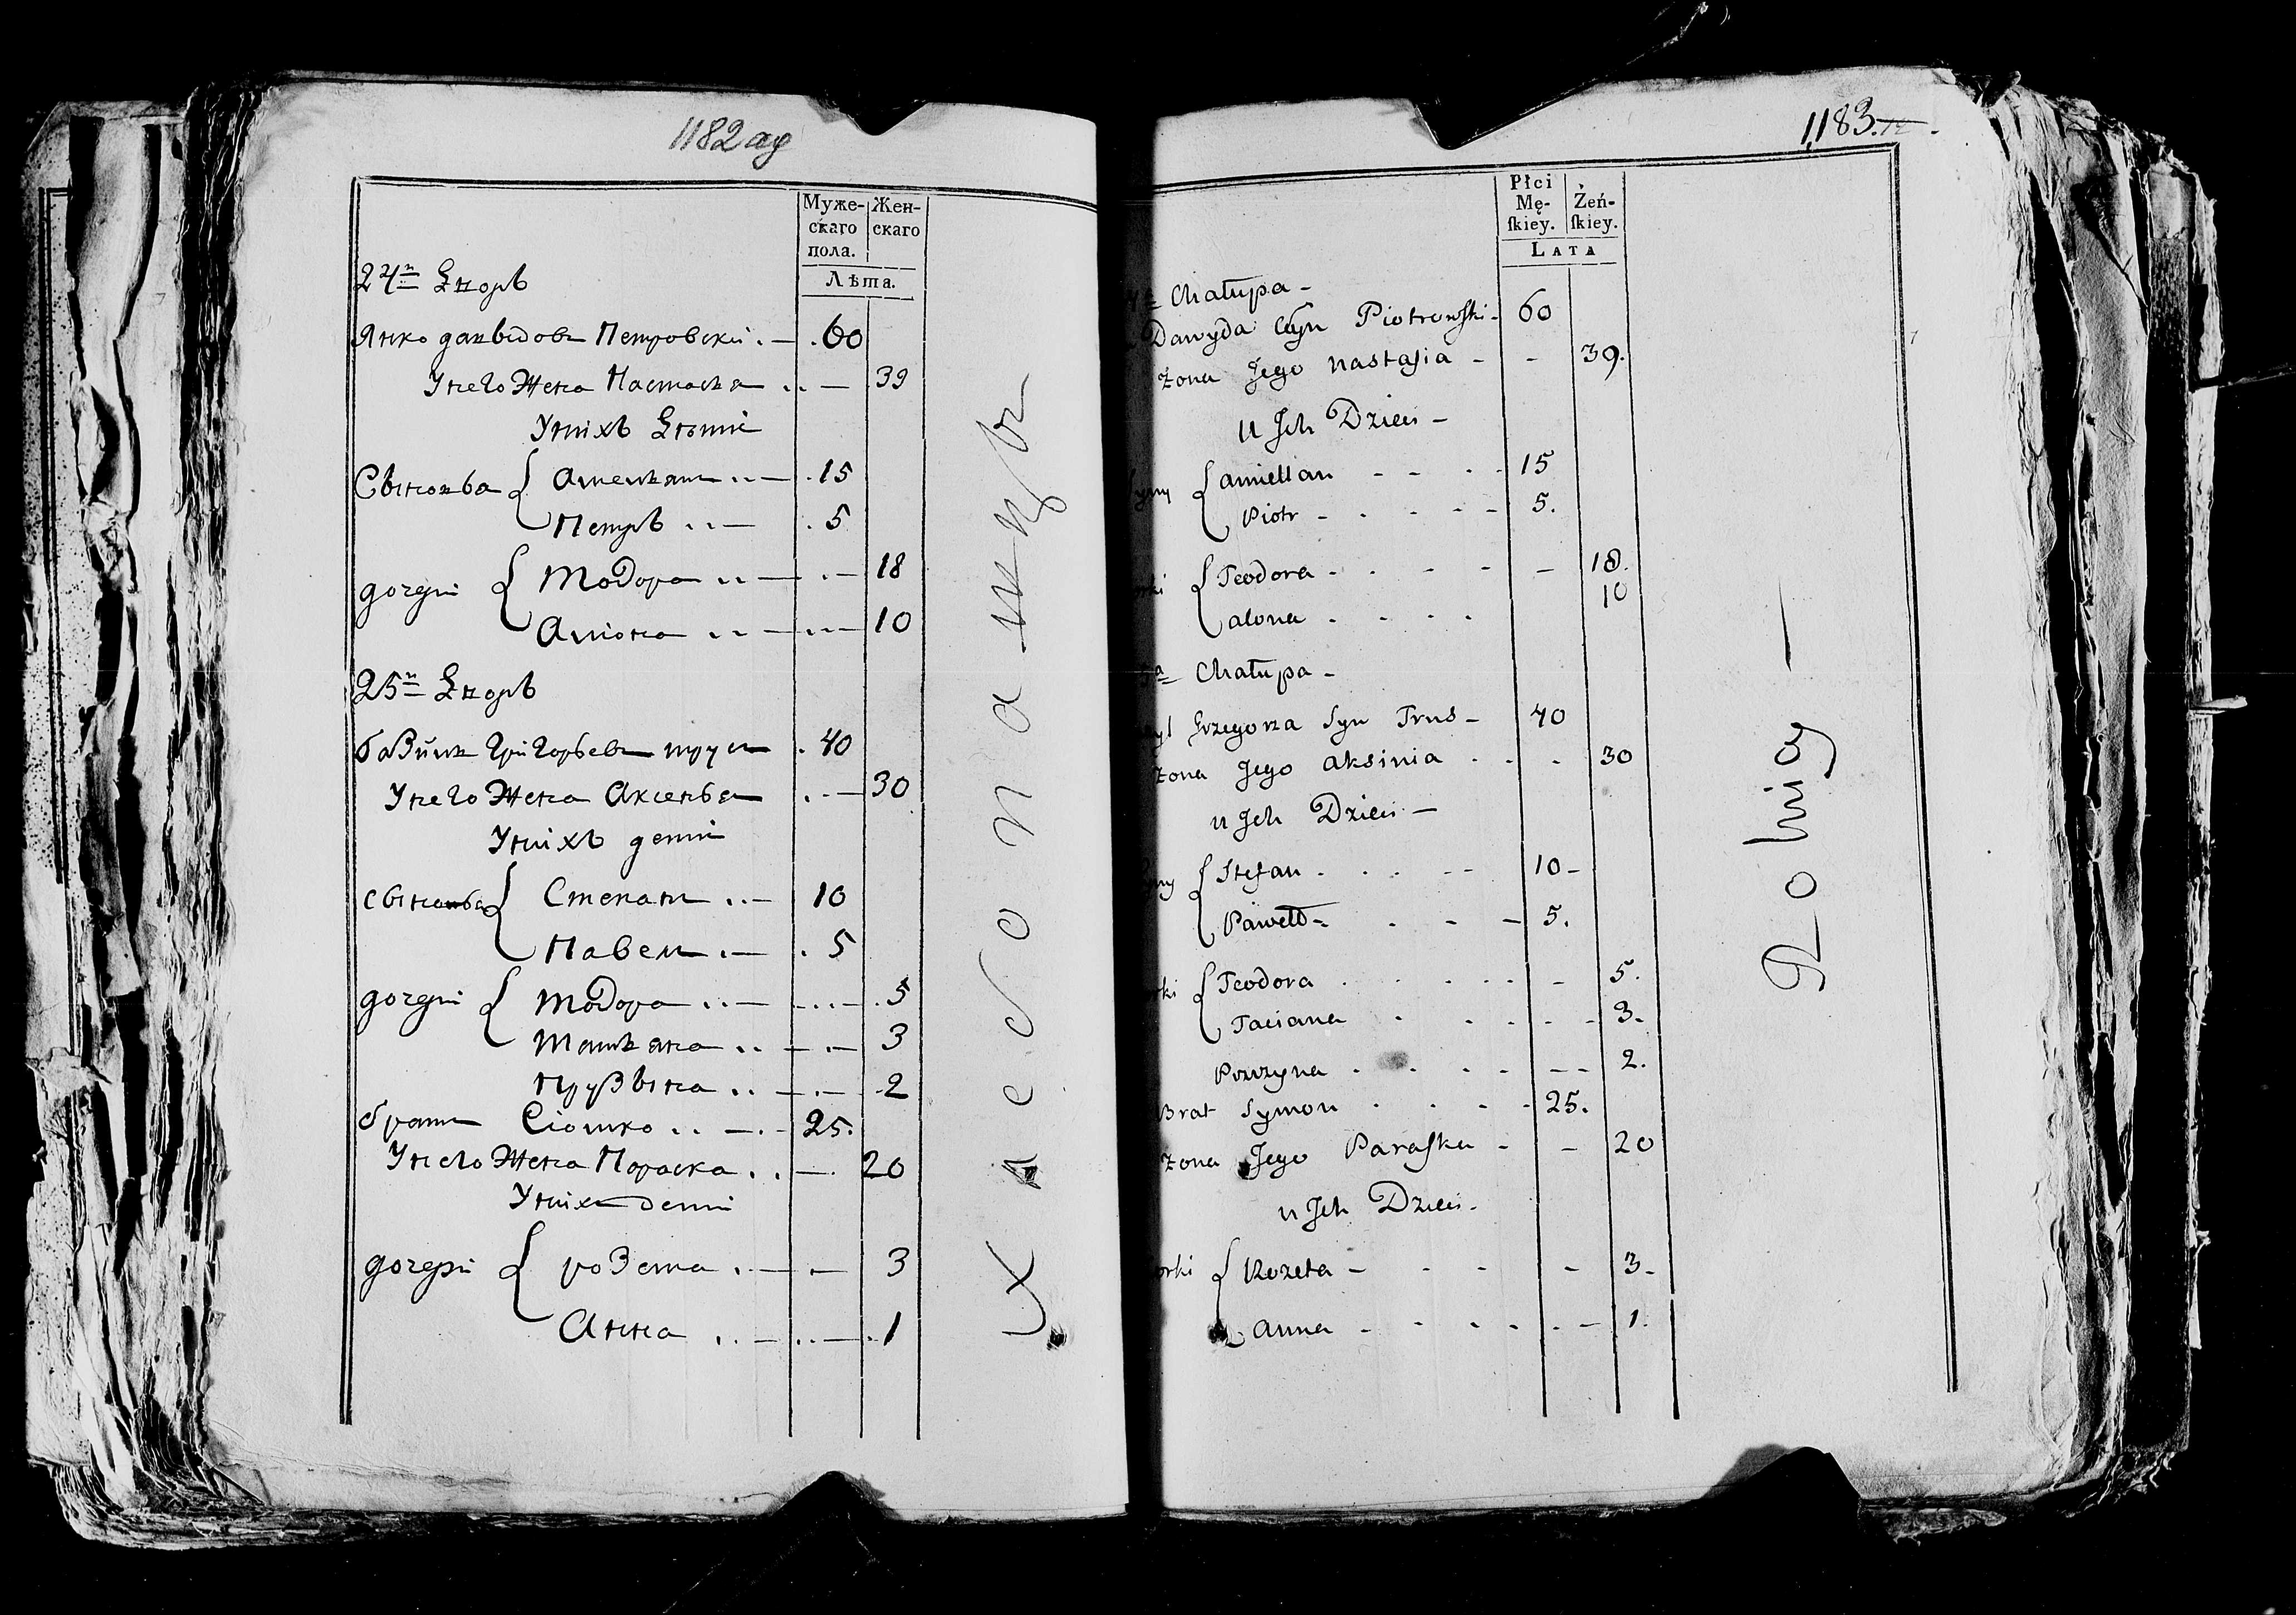 1182 ау
Муже-
скаго
пола.
Жен-
скаго
Лѣта.
24й Дворъ
Янко давыдовъ Петровски 60
Унего Жена Настася 39
Унихъ Дети
Сыновья Амельян 15
Петръ 5
дочери Тодора 18
Алиона 10
25й Дворъ
Григорьевъ трус 40
Унего Жена Аксенья 30
Унихъ дети
сыновья Степан 10
Павел 5
дочери Тодора 5
Татьяна 3
Прузына 2
брат Сіомко 25.
Унего Жена Параска 20
Уних дети
дочери розета 3
Анна 1
Хлебопашцы
1183.
Płci
Mę-
ſkiey.
Żeń-
ſkiey.
LATA
Chałupa -
Dawyda Syn Piotrowſki - 60
żona Jego Nastaſia - - 39.
u Jch Dzieci -
amellan - - - 15
Piotr - - - - 5.
Teodora - - - - 18.
alona - - - - 10
Chałupa -
Grzegorza Syn Trus - 40
żona Jego Aksinia - - 30
u Jch Dzieci -
Stefan - - - 10 -
Paweł - - - 5.
Teodora - - - - 5.
Taciana - - - - 3.
- - - - 2.
Brat Symon - - - 25.
żona Jego Paraſka - - 20
u Jch Dzieci -
Rozeta - - - - 3 -
anna - - - - 1.
Rolnicy